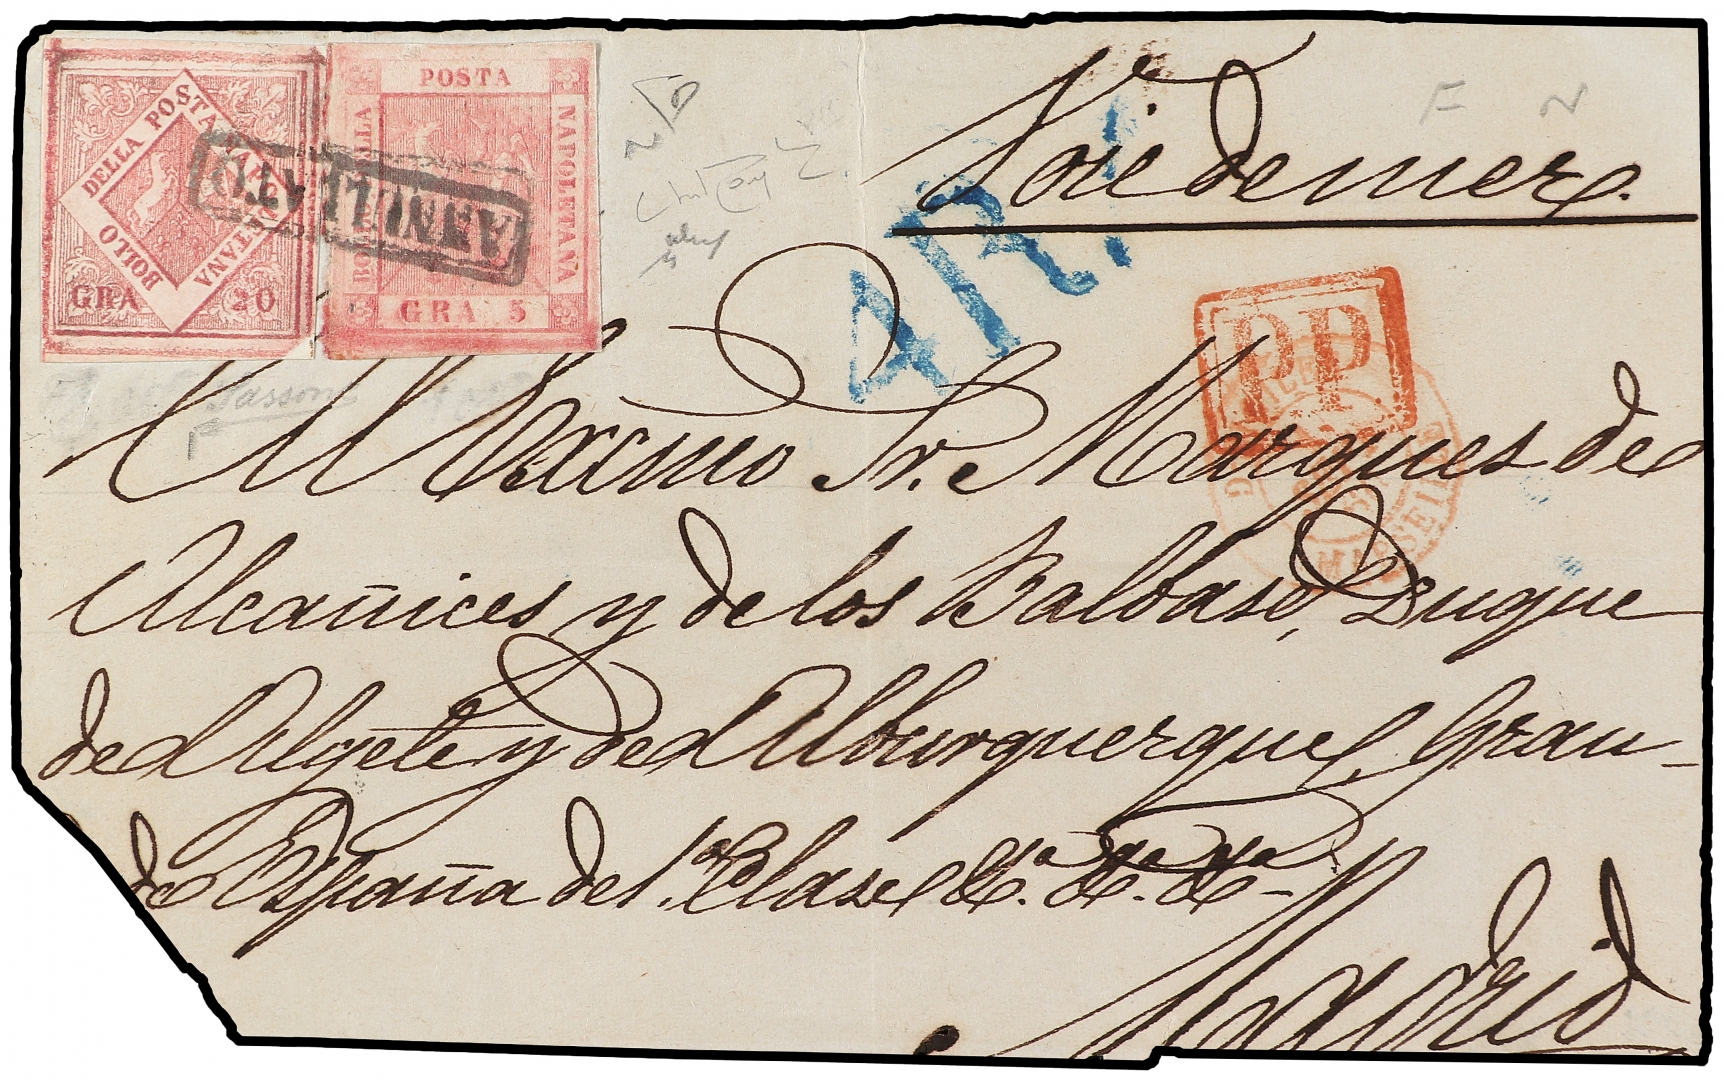 BOLLO DELLA POSTA NAPOLETANA
GRA 20
POSTA
NAPOLETANA
BOLLO DELLA
GRA 5
ANNULLATO
Voie de mer.
4 R.
P.P.
MARSEILLE
Sassone
Al Excmo Sr. Marques de
Alcañices y de los Balbases, Duque
de Algete y de Alburquerque, Gran-
de España de 1ª Clase &ª. &ª. &ª-
Madrid